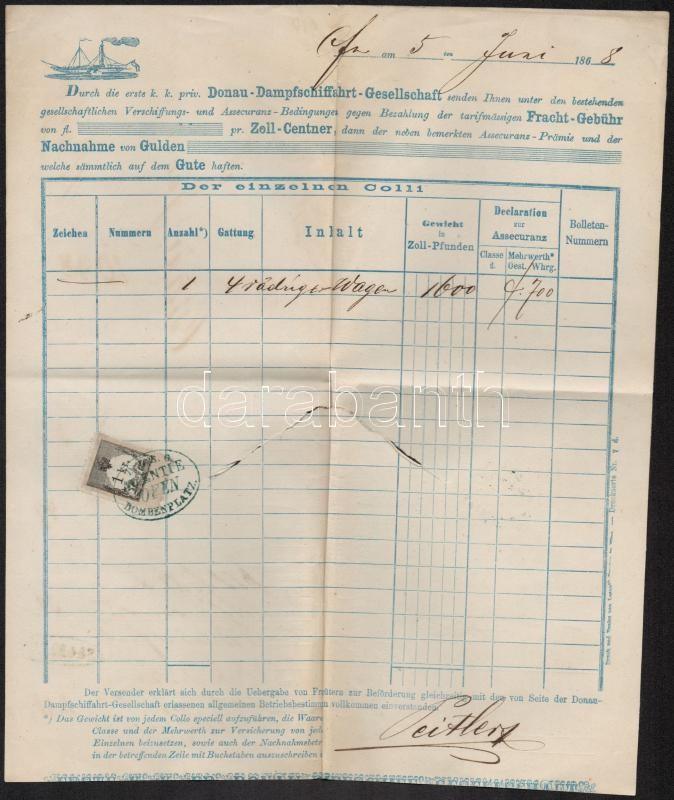 Ofn am 5 ten Juni 1868
Durch die erste k. k. priv. Donau-Dampfschiffahrt-Gesellschaft senden Ihnen unter den bestehenden
gesellschaftlichen Verschiffungs- und Assecuranz-Bedingungen gegen Bezahlung der tarifmässigen Fracht-Gebühr
von fl. pr. Zoll-Centner, dann der neben bemerkten Assecuranz-Prämie und der
Nachnahme von Gulden
welche sämmtlich auf dem Gute haften.
Der einzelnen Colli
Zeichen Nummern Anzahl*) Gattung Inhalt Gewicht in Zoll-Pfunden Declaration zur Assecuranz Classe d. Mehrwerth* Oest. Whrg. Bolleten-Nummern
— 1 4 rädriger Wagen 1600 f. 700
darabanth
1 kr.
AGENTIE
OFEN
BOMBENPLATZ.
Der Versender erklärt sich durch die Uebergabe von Frütern zur Beförderung gleichzeitig mit den von Seite der Donau-
Dampfschiffahrt-Gesellschaft erlassenen allgemeinen Betriebsbestimm vollkommen einverstanden.
*) Das Gewicht ist von jedem Collo speciell aufzuführen, die Waare
Classe und der Mehrwerth zur Versicherung von jed
Einzelnen beizusetzen, sowie auch der Nachnahmsbetr
in der betreffenden Zeile mit Buchstaben auszuschreiben